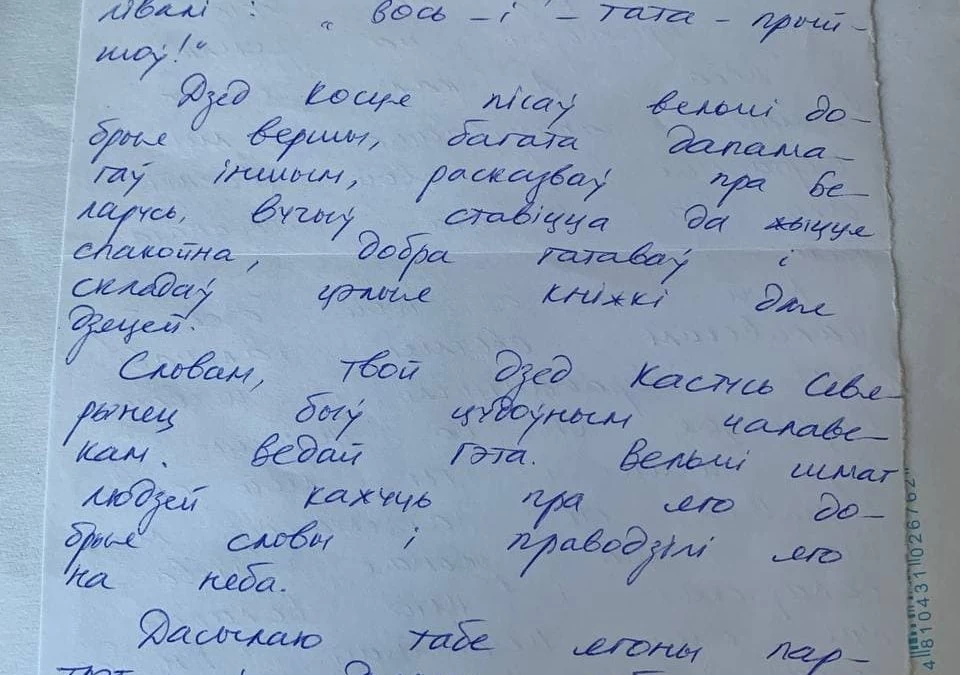 лівалі : „ вось – і – тата – прый-
шоў!“
Дзед Косця пісаў вельмі до-
брыя вершы, багата дапама-
гаў іншым, расказваў пра Бе-
ларусь, вучыў ставіцца да жыцця
спакойна, добра гатаваў і
складаў цэлыя кніжкі для
дзяцей.
Словам, твой дзед Кастусь Севя-
рынец быў цудоўным чалаве-
кам. Ведай гэта. Вельмі шмат
людзей кажуць пра яго до-
брыя словы і праводзілі яго
на неба.
Дасылаю табе ягоны пар-
4 810431 026762